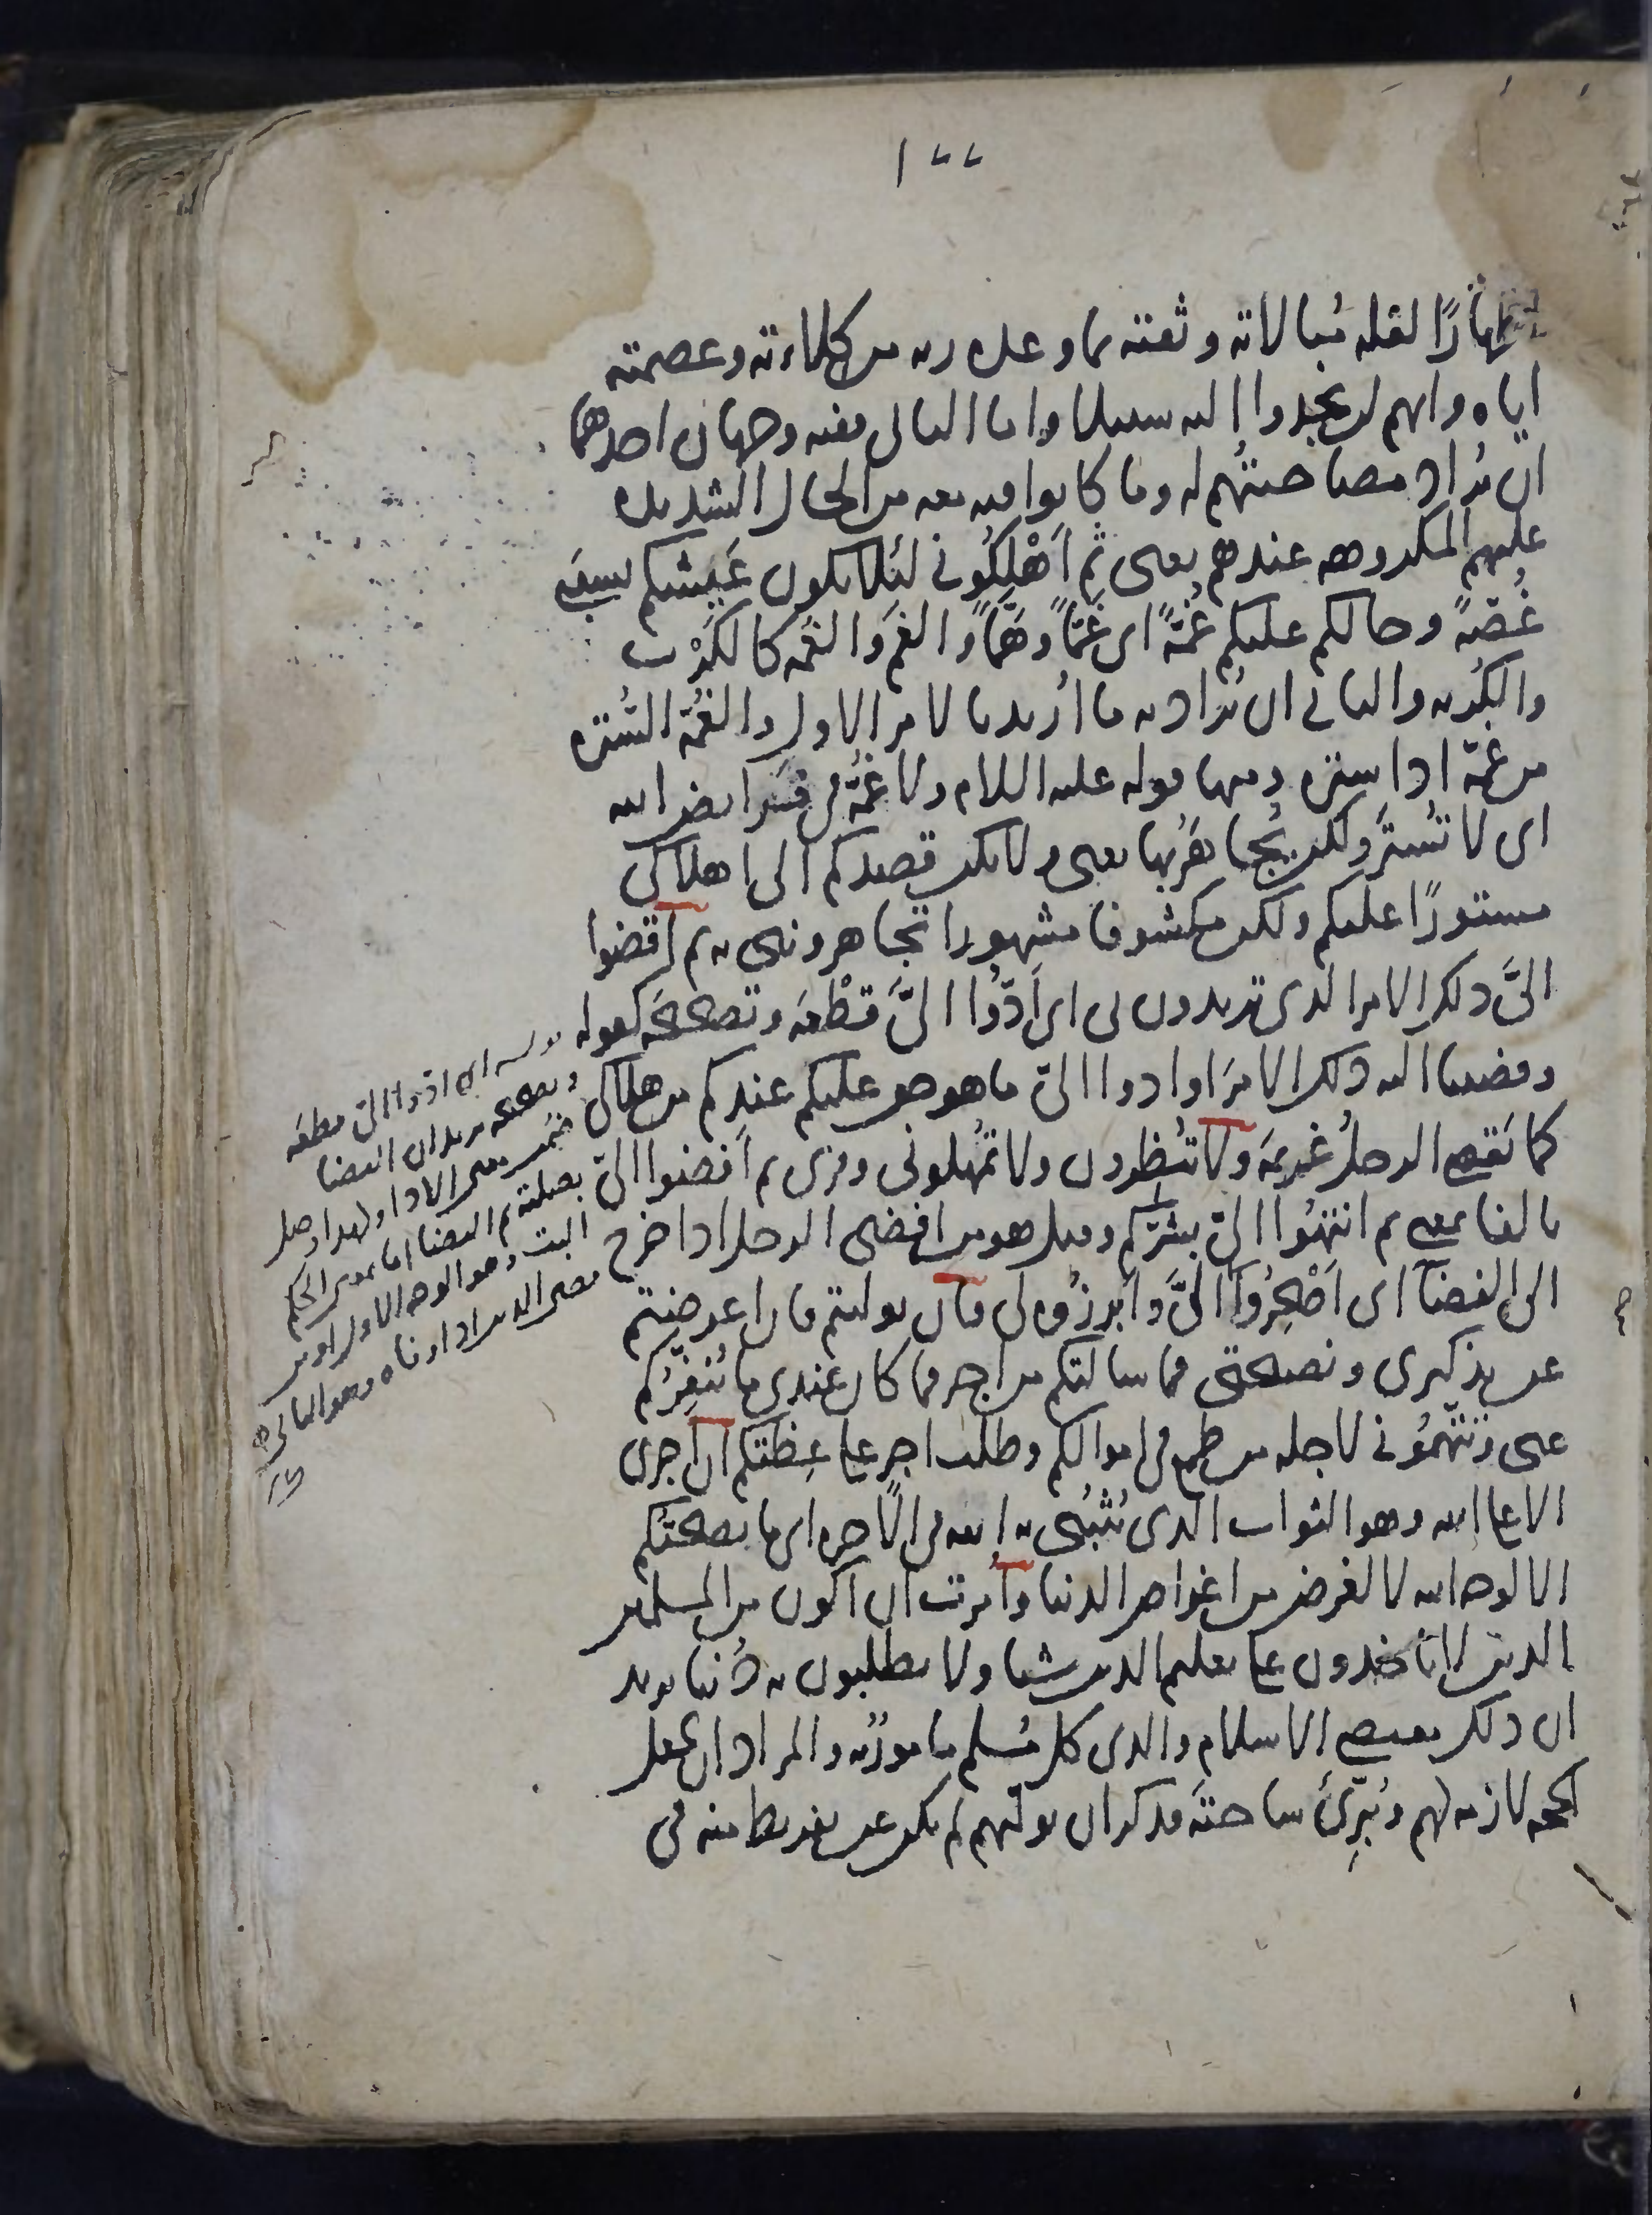 ١٧٧
إظهارًا لقلة مُبالاته وثقته بما وعده ربه من كلاءته وعصمته
اياه وانهم لن يجدوا اليه سبيلا واما الثاني ففيه وجهان احدهما
ان يُراد مصاحبتُهم له وما كانوا فيه معه من الحال الشديدة
عليهم المكروهه عندهم يعنى ثم اَهْلِكُونى لئلا يكون عَيشكم بسببى
غُصّةً وحالكم عليكم غُمّةً اى غَمًّا وهَمًّا والغم والغمه كالكَرْب
والكُربه والثانى ان يُراد به ما اُريد بالامر الاول والغُمّة السُّتره
من غمّه اذا ستره ومنها قوله عليه السلام ولا غُمّة فى فرائض الله
اى لا تُستَر ولكن يُجاهَرُ بها يعنى ولا يكن قصدكم الى اهلاكى
مستورًا عليكم ولكن مكشوفا مشهورا تجاهروننى به ثم اقضوا
الىَّ ذلك الامر الذى تريدون بى اى اَدّوا الىَّ قطْعَه وتصحيحَه كقوله
وقضينا اليه ذلك الامرَ او ادوا الىّ ما هو حق عليكم عندكم من هلاكى
كما يَقضى الرجلُ غريمَه ولا تُنظِرون ولا تُمهلونى وقرى ثم اَفضوا الىّ
بالفا بمعنى ثم انتهُوا الىّ بشرّكم وقيل هو من افضى الرجل اذا خرج
الى الفضآ اى اَصْحِرُوا الىَّ وأبرزُوه لى فان توليتم فان اعرضتم
عن تذكيرى ونصيحتى فما سالتكم من اجر فما كان عندى ما يُنفِرُكم
عنى وتتّهمُونى لاجله من طمع فى اموالكم وطلب اجر على عِظتكم ان اجرى
الا على الله وهو الثواب الذى يُثيبُنى به الله فى الآخره اى ما نصحتُكم
الا لوجه الله لا لغرض من اغراض الدنيا واُمرت ان اكون من المسلمين
الذين لا ياخذون على تعليم الدين شيا ولا يطلبون به دُنيا يريد
ان ذلك مقتضى الاسلام والذى كل مُسلم مامورٌ به والمراد ان يجعل
الحجه لازمه لهم ويُبرِئَ ساحتَه فذكر ان توليهم لم يكن عن تفريط منه فى
قوله اى ادوا الىّ قطعه
وتصحيحه يريد ان القضا
ضُمّن معنى الادا ولهذا وصل
بصلته ثم القضا اما بمعنى الحكم
البت وهو الوجه الاول او من
قضى الدين اذا اوفاه وهو الثانى